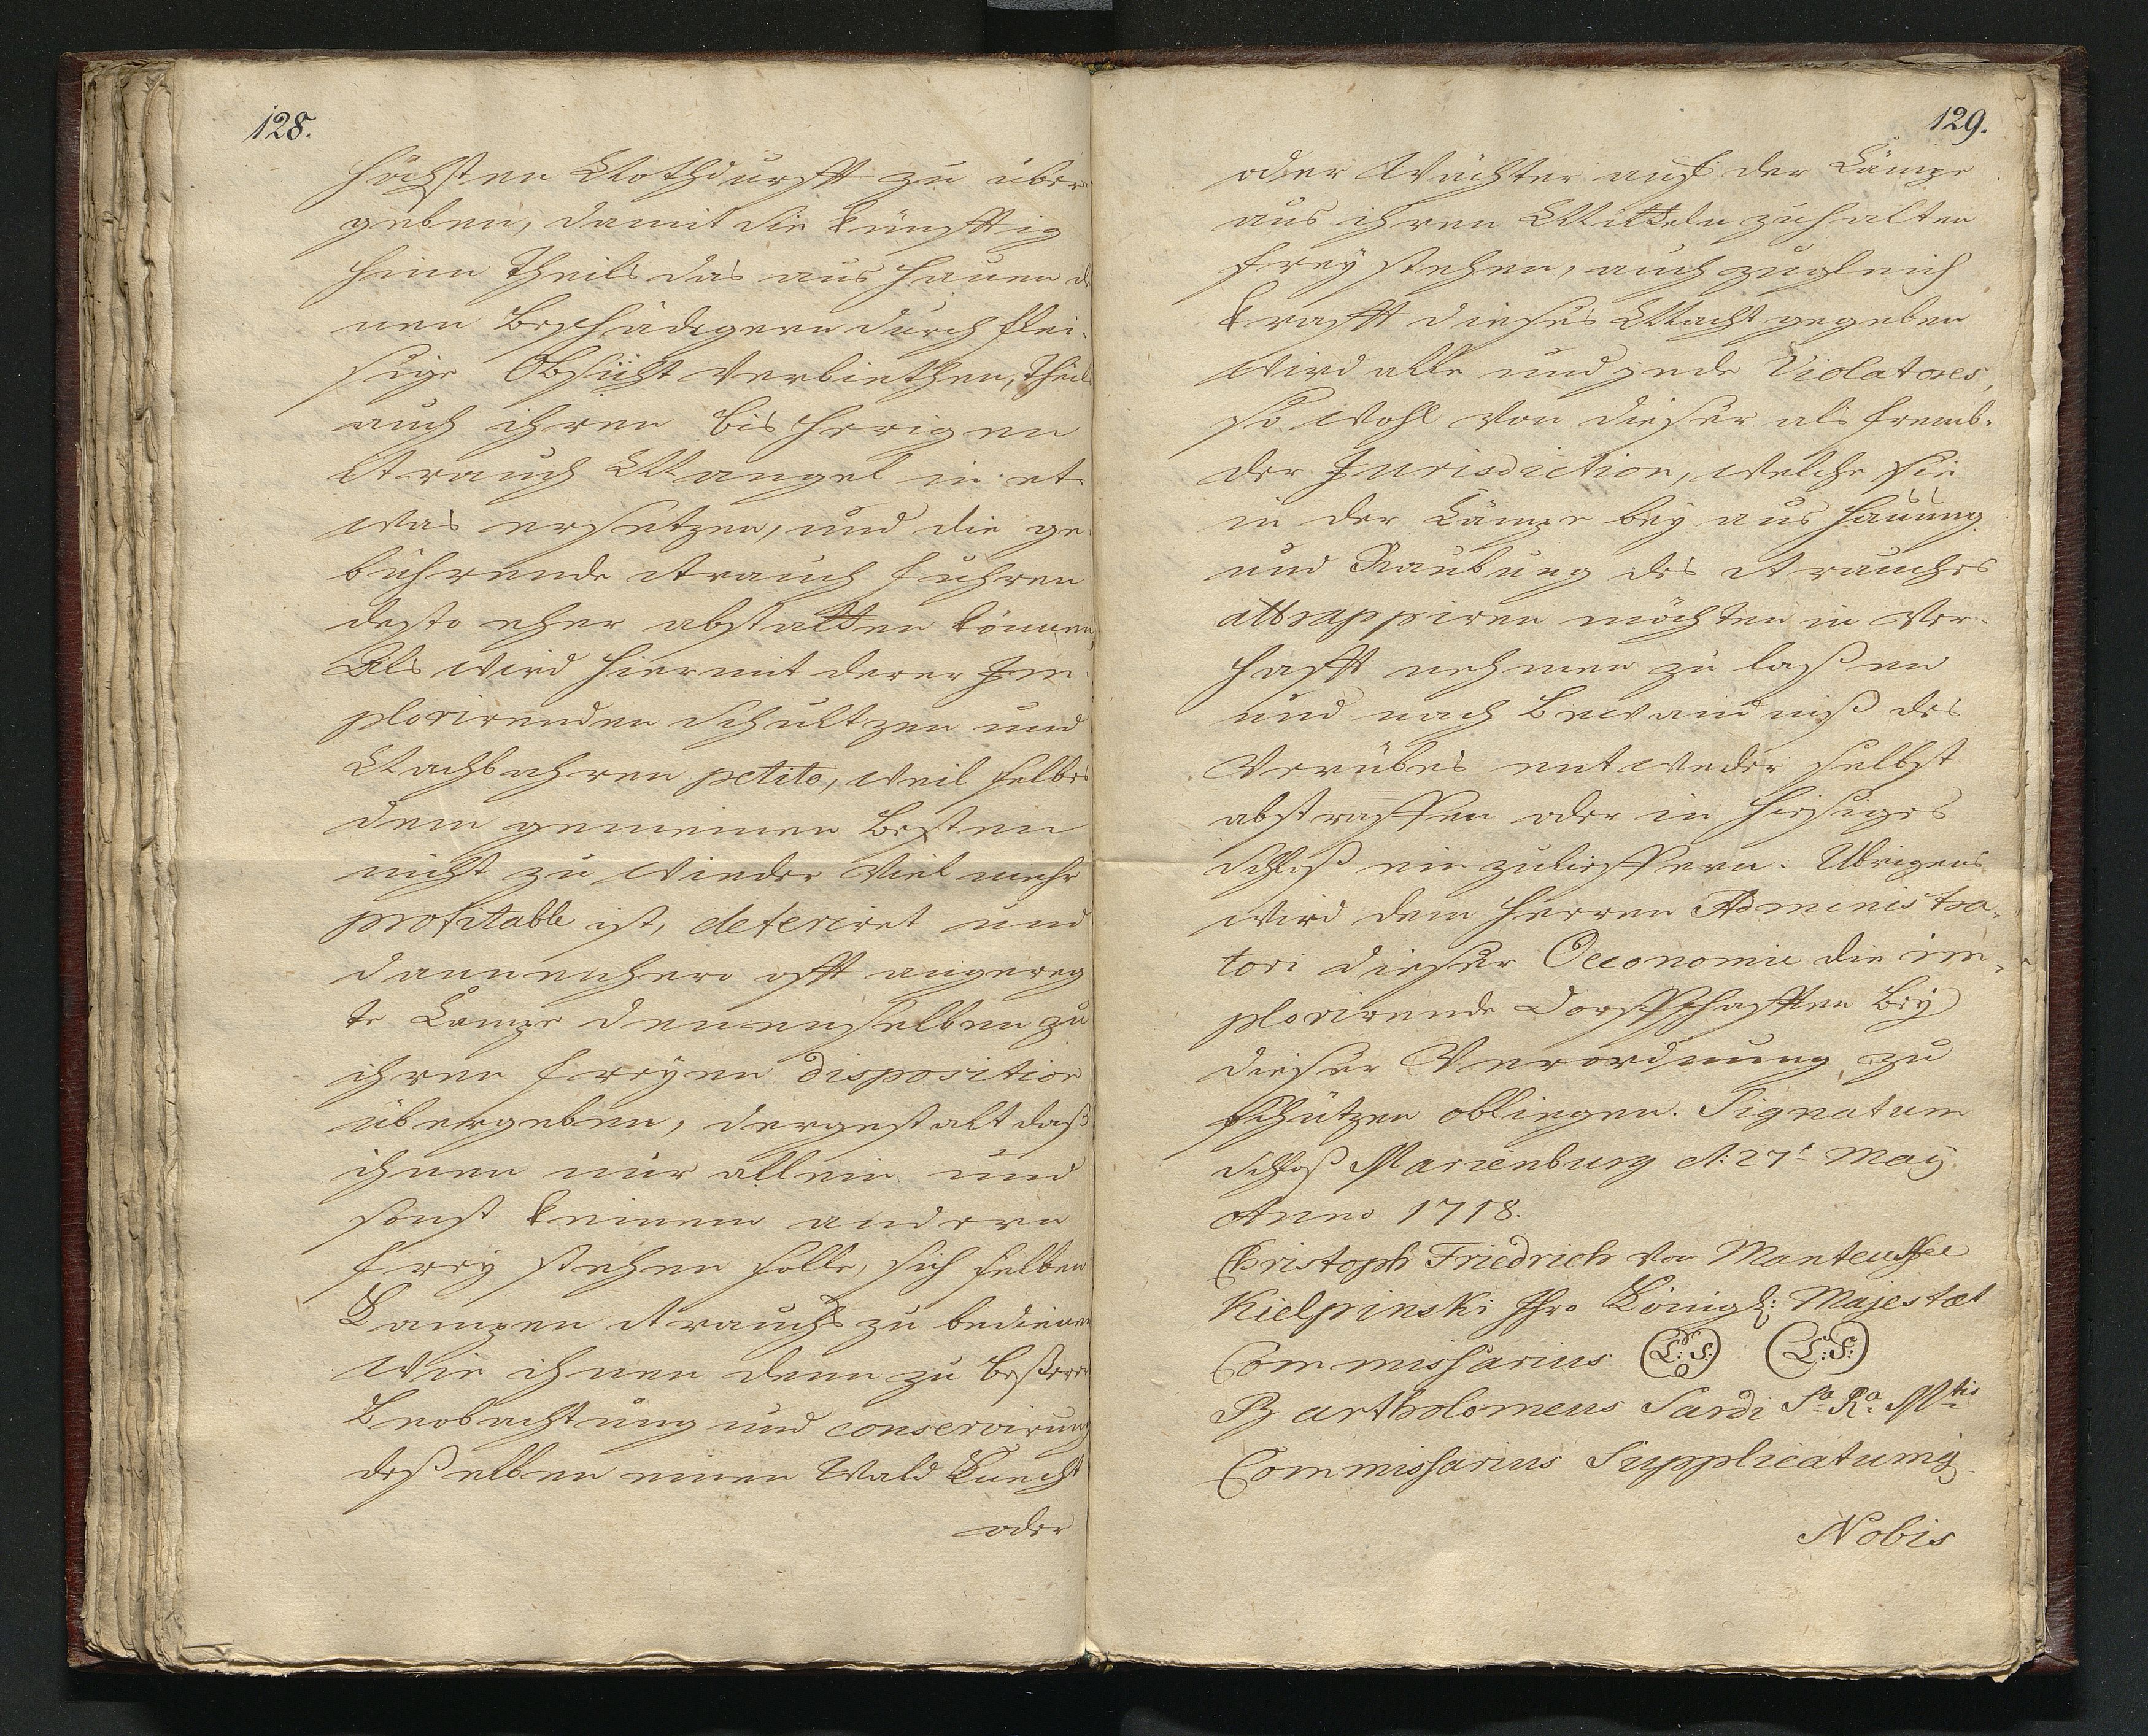 128.
höchsten Nothdurfft zu über
geben, damit die künfftig
hin Theils das aus hauen de
nen Beschädigern durch flei-
sige Obsicht verbiethen, Theils
auch ihren bisherigen
Strauch Mangel in et
was ersetzen, und die ge
bührende Strauch fuhren
desto eher abstatten können,
Als wird hiermit derer Im-
plorirenden Schultzen und
Nachbahren petito, weil selbes
dem gemeinen Besten
nicht zu wieder viel mehr
profitable ist, deferiret und
dannenhero offt angereg
te Kämpe denenselben zu
ihren freyen disposition
übergeben, dergestalt daß
ihnen nur allein und
sonst keinem andern
frey stehen solle, sich selben
Kämpen Strauchs zu bedienen
Wie ihnen denn zu beßeren
Beobachtung und conservirung
deßelben einen Wald Knecht
oder
129.
oder Wächter auf der Kämpe
aus ihren Mitteln zuhalten
frey stehen, auch zugleich
krafft dieses Macht gegeben
wird alle und jede Violatores,
so wohl von dieser als fremb-
der Jurisdiction, welche sie
in der Kämpe bey aus hauung
und Raubung des Strauches
attrappiren möchten in Ver-
hafft nehmen zu laßen
und nach Bewandniß des
Verübes entweder selbst
abstraffen oder in hiesiges
Schloß ein zulieffern. Ubrigens
wird dem Herren Administra-
tori dieser Oeconomie die im-
plorirende Dorffschafften bey
dieser Verordnung zu
schützen obliegen. Signatum
Schloß Marienburg d: 27t May
Anno 1718.
Christoph Friedrich von Manteuffel
Kielpinski Ihro Königl: Majestæt
Commissarius (L:S:) (L:S:)
Bartholomeus Sardi Sa Ra Mtis
Commissarius Supplicatumq
Nobis